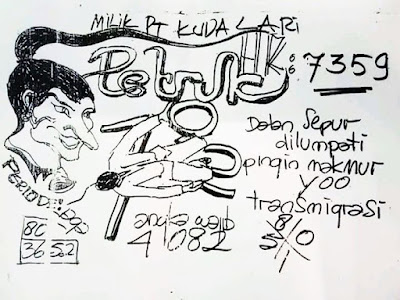 MILIK PT KUDA LARI
Petruk
7359
Dalan Sepur
dilumpati
pingin makmur
yoo
transmigrasi
8/0
5/1
PERIODE
angka wajib
4 082
80
36 52